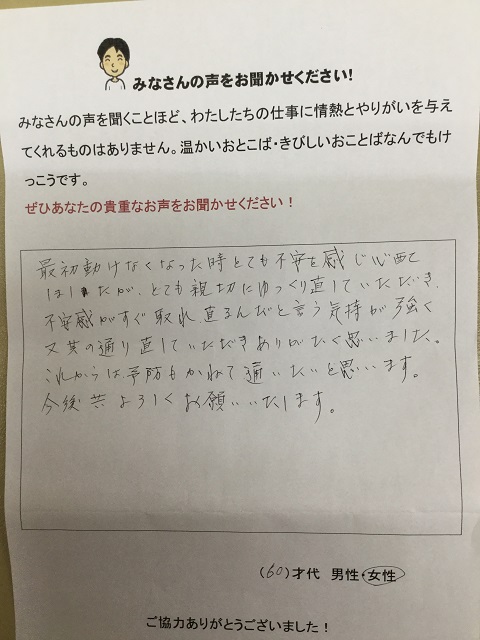 みなさんの声をお聞かせください!
みなさんの声を聞くことほど、わたしたちの仕事に情熱とやりがいを与え
てくれるものはありません。温かいおとこば・きびしいおことばなんでもけ
っこうです。
ぜひあなたの貴重なお声をお聞かせください！
最初動けなくなった時とても不安を感じ心配で
したが、とても親切にゆっくり直していただき、
不安感がすぐ取れ直るんだと言う気持が強く
又其の通り直していただきありがたく思いました。
これからは予防もかねて通いたいと思います。
今後共よろしくお願いいたします。
(60)才代 男性・女性
ご協力ありがとうございました！